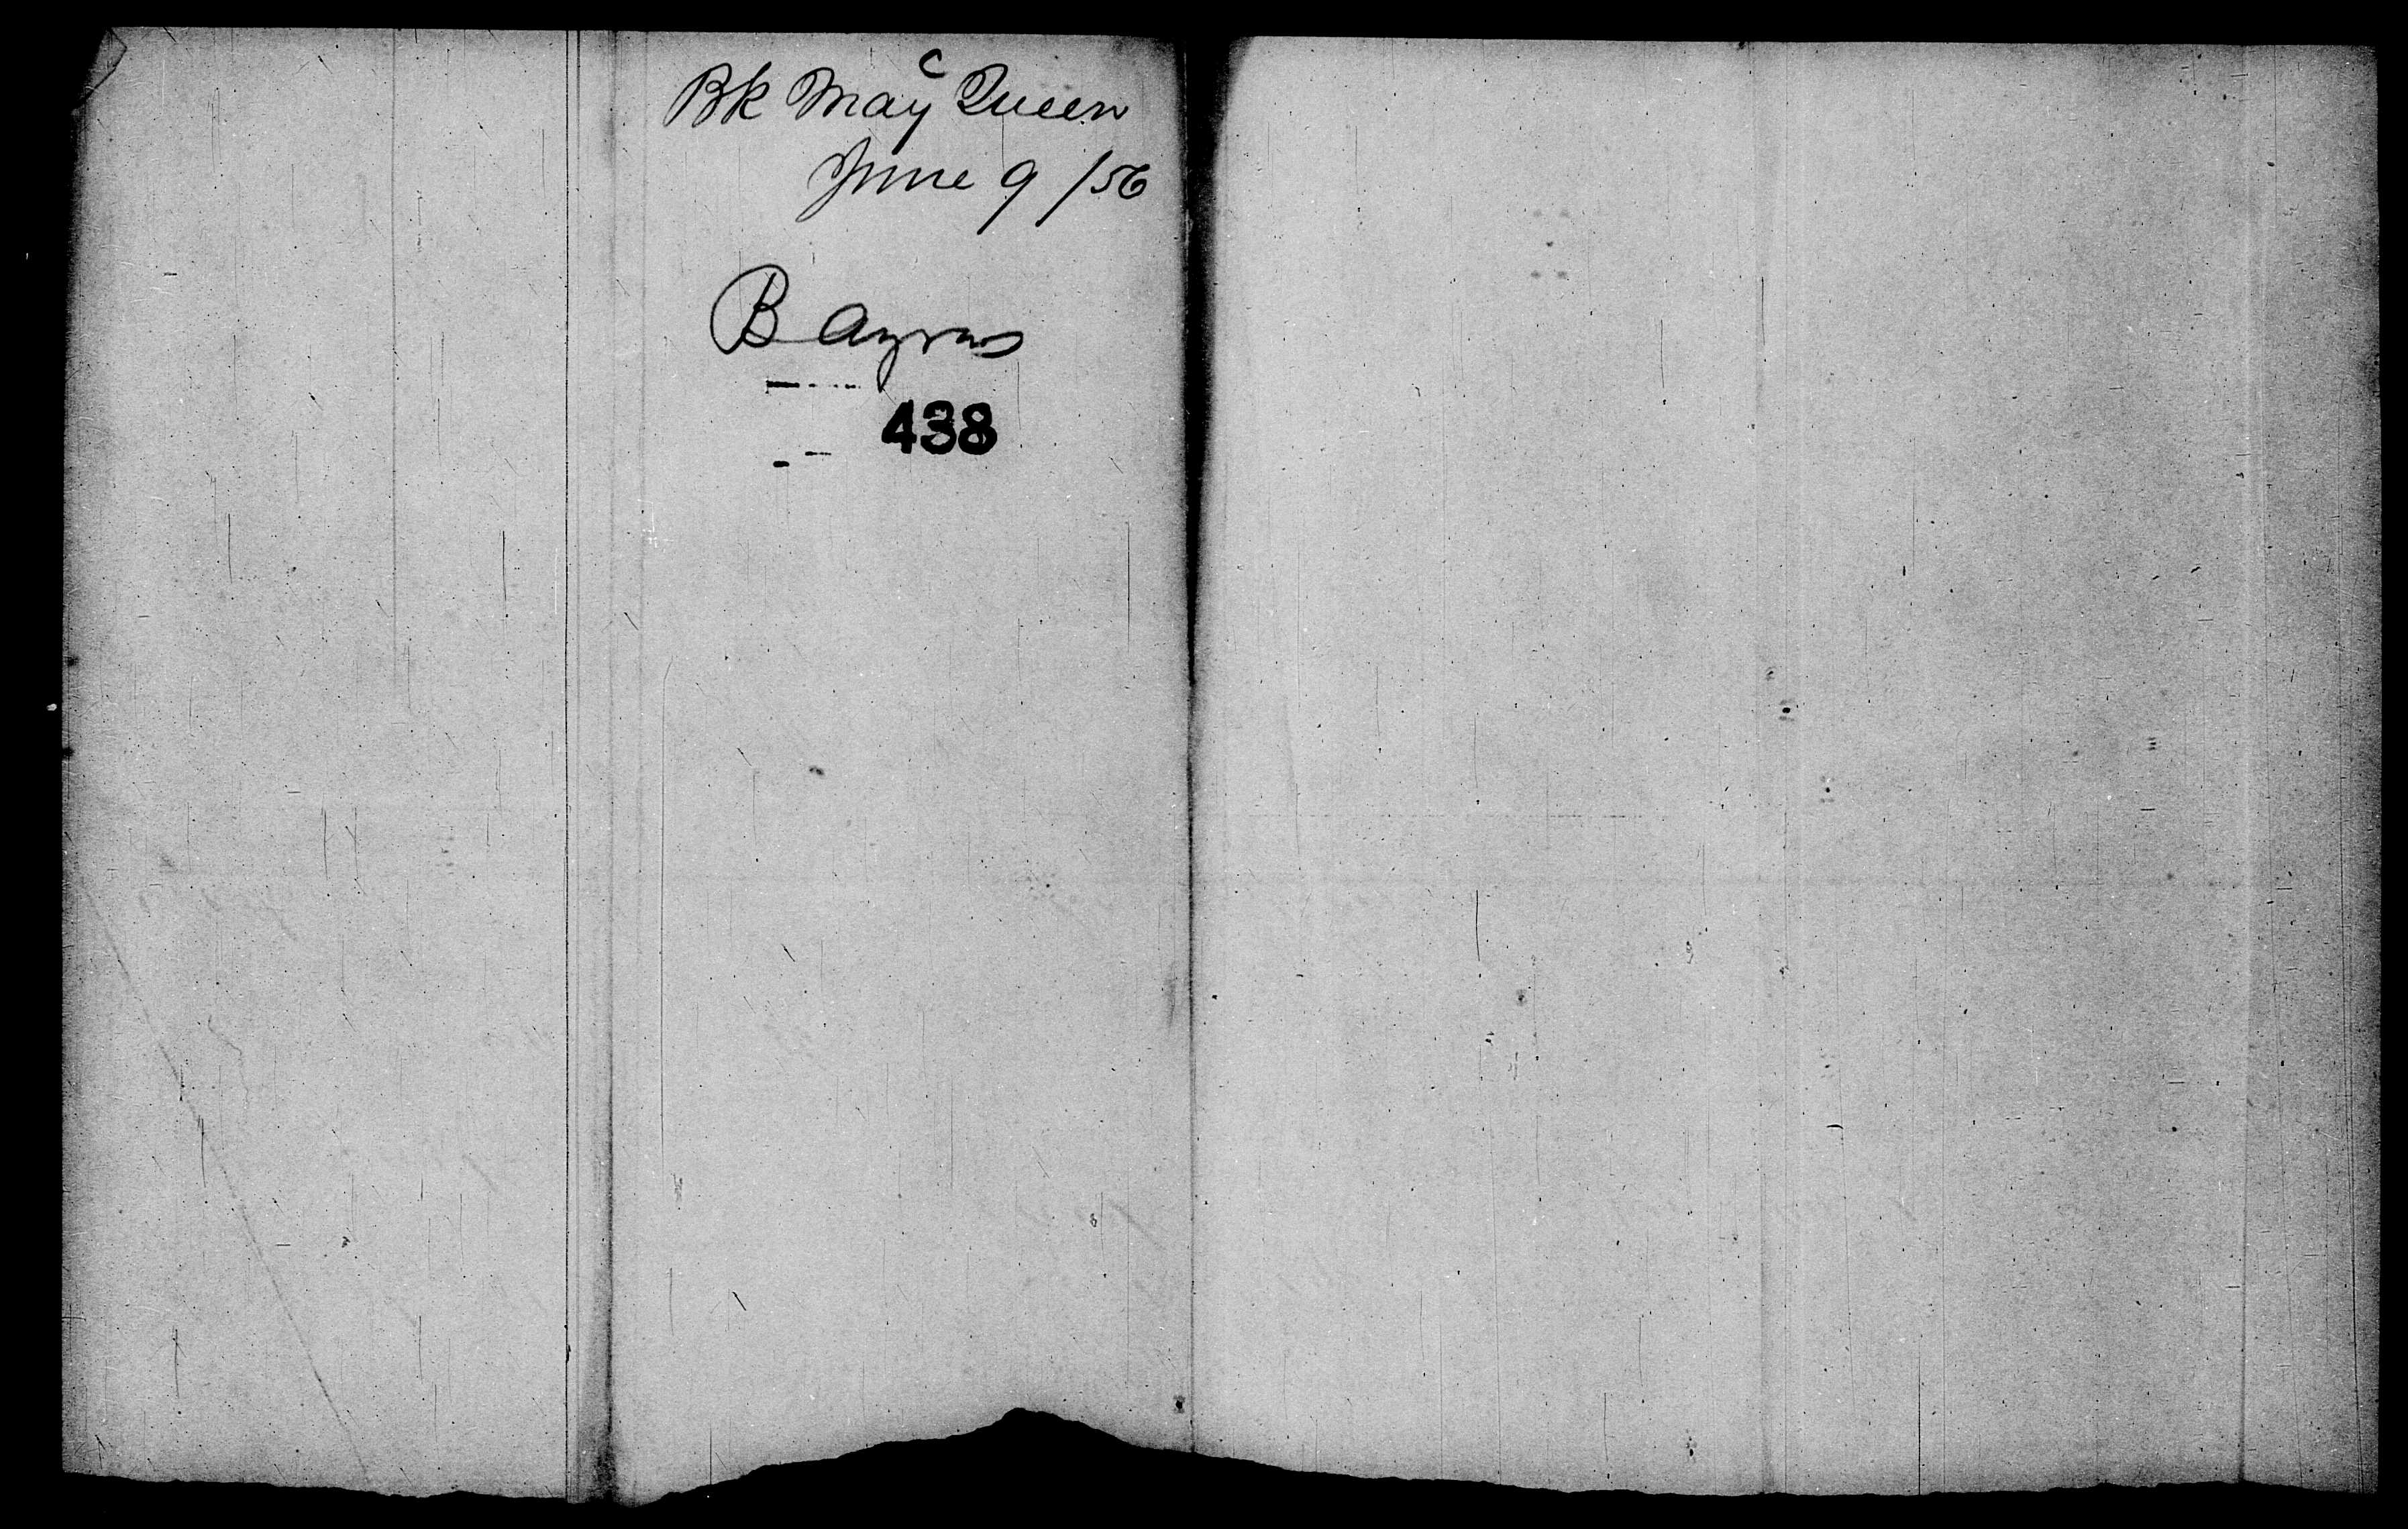 c
Bk May Queen
June 9 /56
B Ayres
438